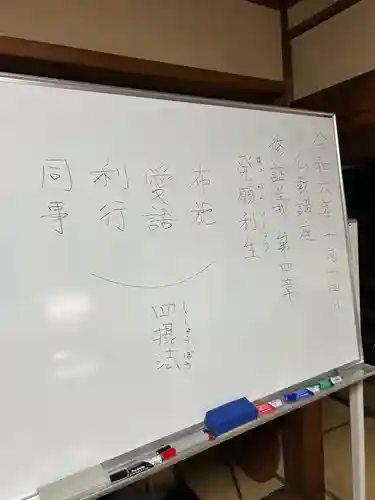 令和六年十一月十四日
仏教講座
修証義 第四章
発願利生
ほつがんりしょう
布施
愛語
利行
同事
四摂法
ししょうぼう